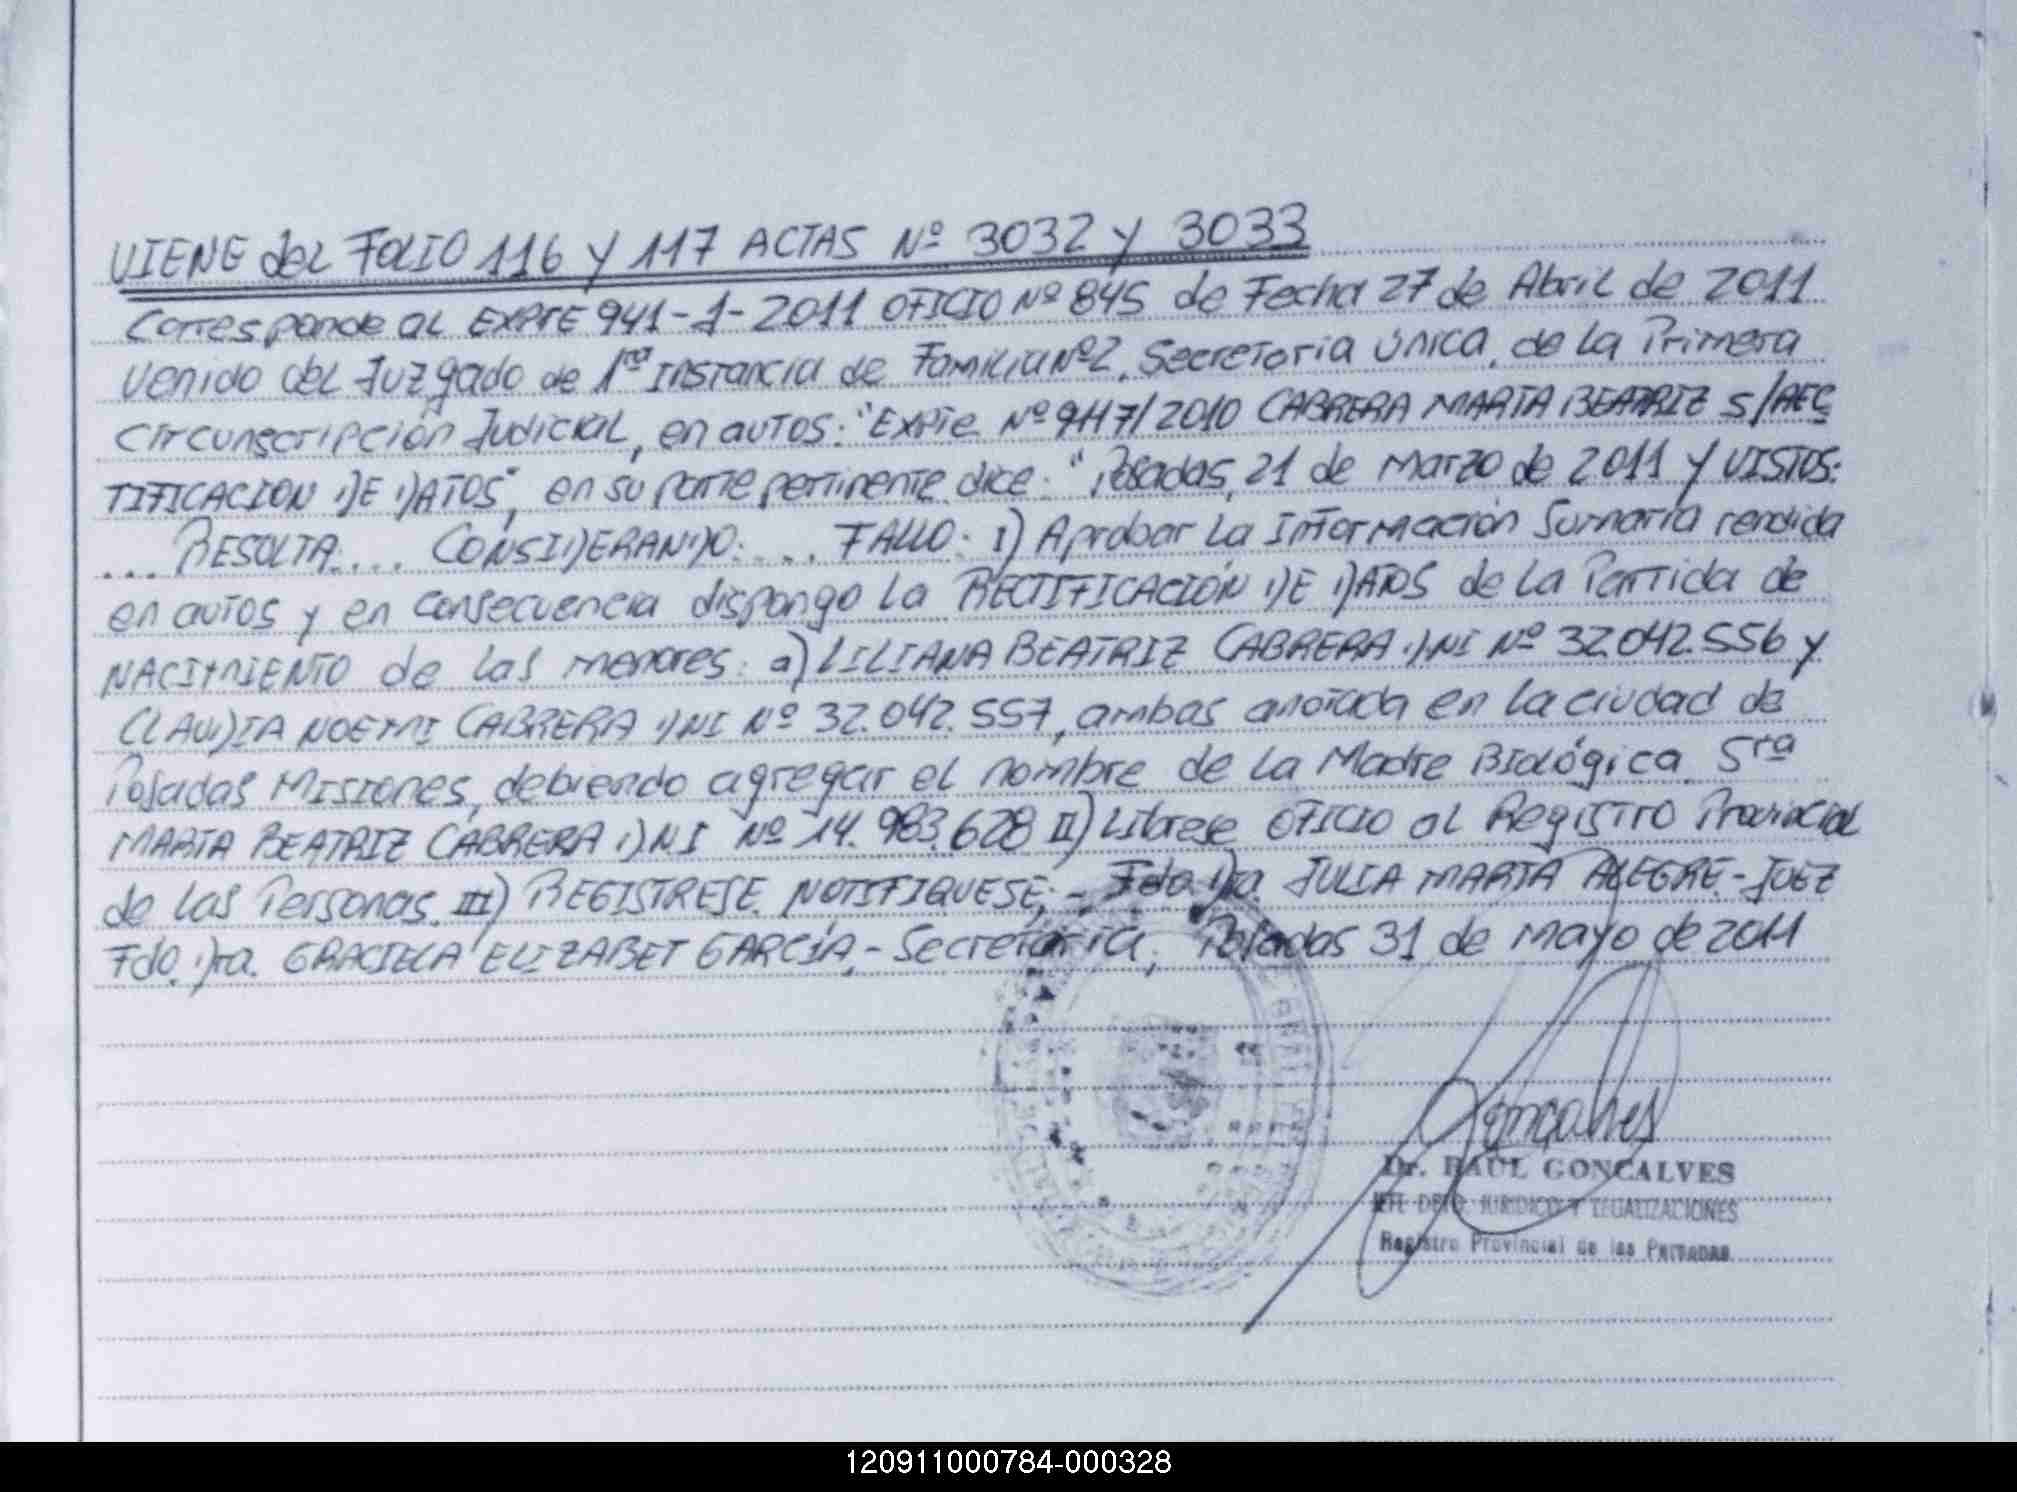 VIENE del FOLIO 116 Y 117 ACTAS Nº 3032 y 3033
Corresponde al EXPTE 941-1-2011 OFICIO Nº 845 de Fecha 27 de Abril de 2011
venido del Juzgado de 1ra Instancia de Familia Nº2, Secretoria Única, de la Primera
Circunscripción Judicial, en autos: "Expte Nº 9117/2010 CABRERA MARTA BEATRIZ S/REC
TIFICACION DE DATOS", en su parte pertinente dice: "Posadas, 21 de Marzo de 2011 Y VISTOS:
... RESOLTA:... CONSIDERANDO:.... FALLO: I) Aprobar la Información Sumaria rendida
en autos y en consecuencia dispongo la RECTIFICACIÓN DE DATOS de la Partida de
NACIMIENTO de las menores: a) LILIANA BEATRIZ CABRERA DNI Nº 32.042.556 y
CLAUDIA NOEMI CABRERA DNI Nº 32.042.557, ambas anotada en la ciudad de
Posadas Misiones, debiendo agregar el nombre de la Madre Biológica Sra
MARTA BEATRIZ CABRERA DNI Nº 14.983.628 II) Librese Oficio al Registro Provincial
de las Personas. III) REGISTRESE. NOTIFIQUESE.- Fdo. Dra. JULIA MARTA ALEGRE - JUEZ
Fdo. Dra. GRACIELA ELIZABET GARCÍA.- Secretaria, Posadas 31 de mayo de 2011
Gonçalves
Dr. RAUL GONCALVES
JEFE DPTO. JURIDICO Y LEGALIZACIONES
Registro Provincial de las
120911000784-000328